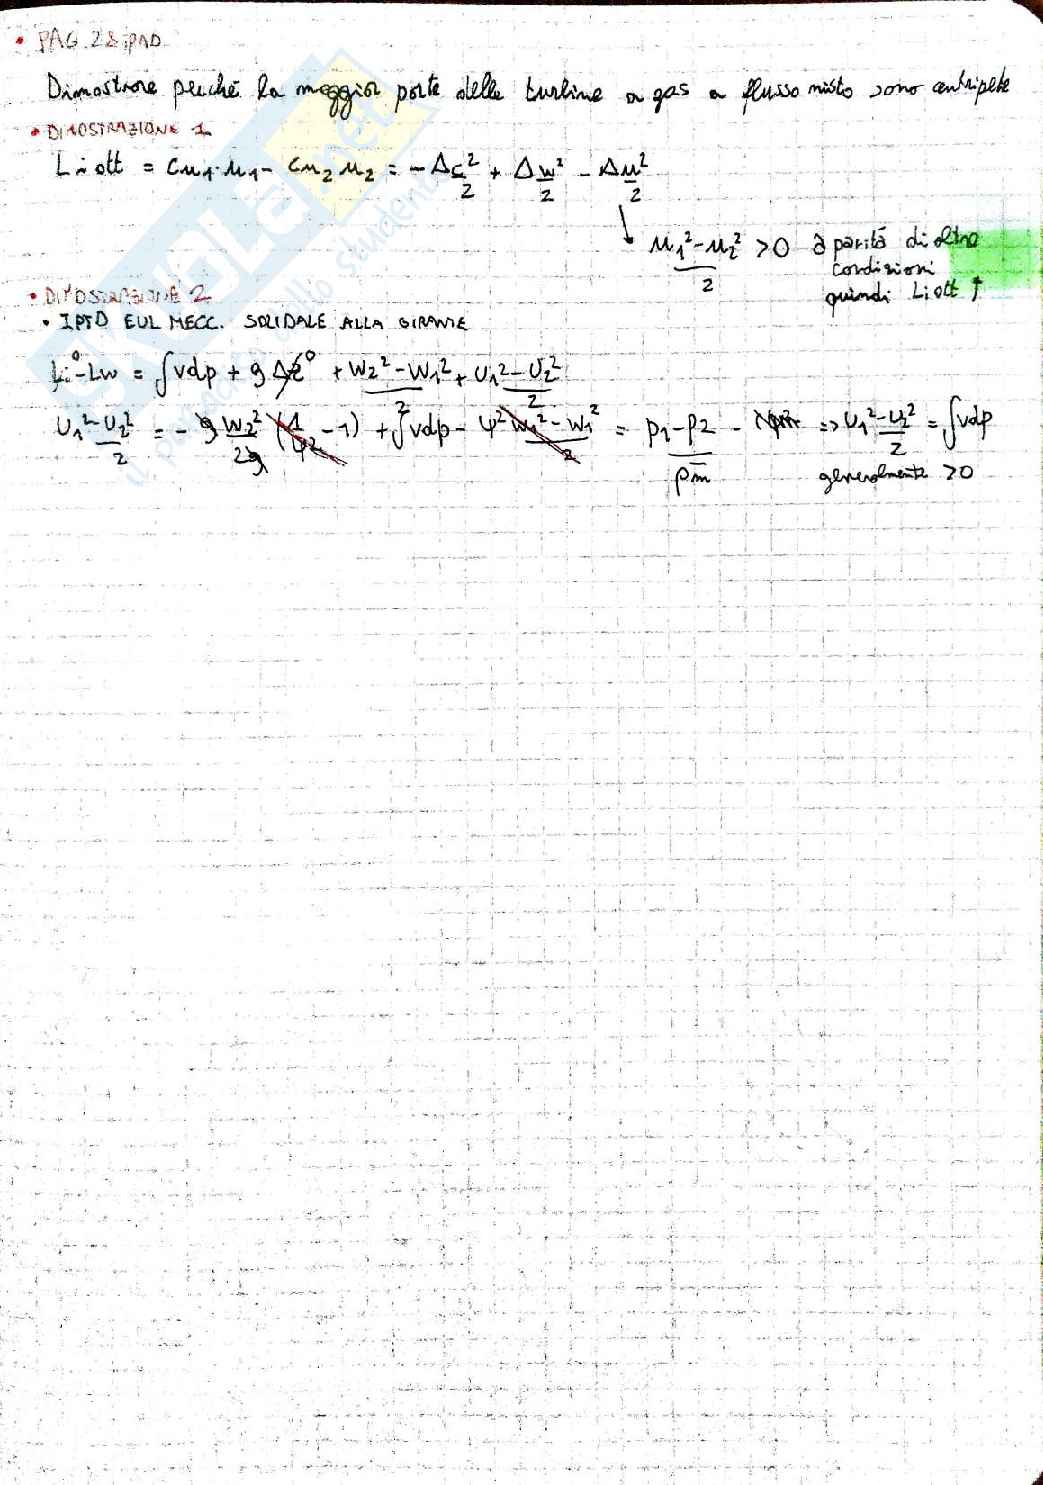 • PAG. 28 iPAD
Dimostrare perché la maggior parte delle turbine a gas a flusso misto sono centripete
• DIMOSTRAZIONE 1
Li ott = Cu1·u1 - Cu2 u2 = - Δc²/2 + Δw²/2 - Δu²/2
(u1² - u2²)/2 > 0 a parità di altre
condizioni
quindi Li ott ↑
• DIMOSTRAZIONE 2
• IPTD EUL MECC. SOLIDALE ALLA GIRANTE
Li⁰ - Lw = ∫vdp + gΔz⁰ + (w2² - w1²)/2 + (U1² - U2²)/2
(U1² - U2²)/2 = - g w2²/2g (1/ψ² - 1) + ∫vdp - = (p1 - p2)/ρm - => (U1² - U2²)/2 = ∫vdp
generalmente > 0
SKUOLA.net